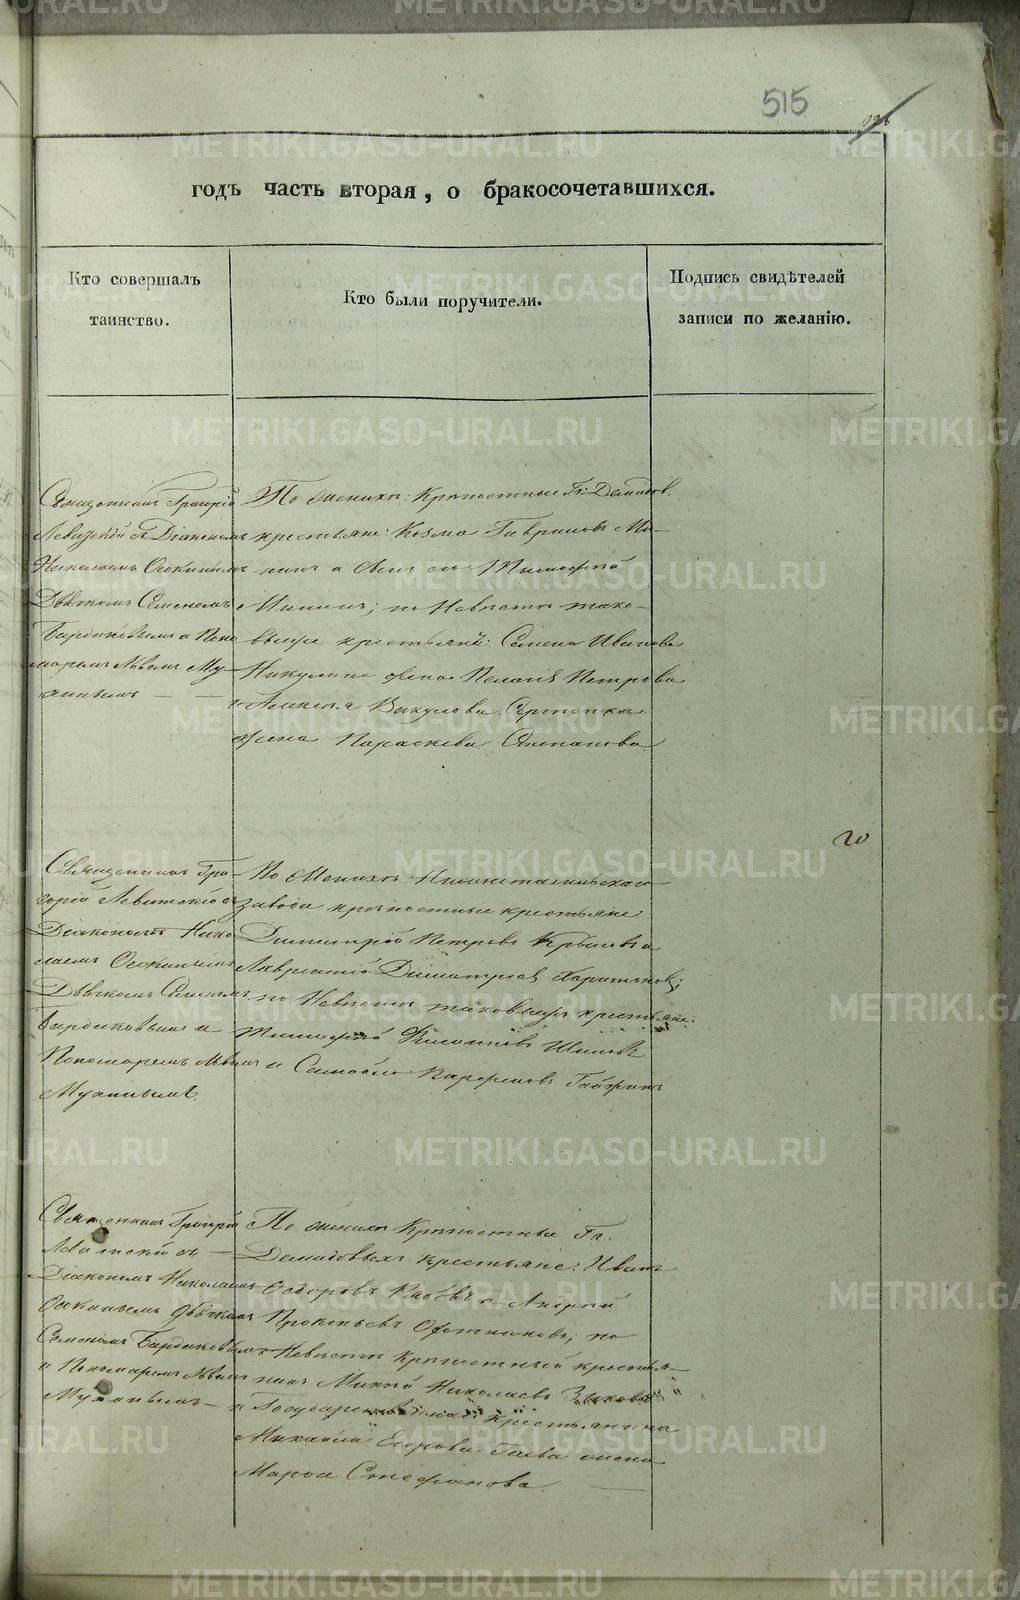 515
годъ часть вторая, о бракосочетавшихся.
Кто совершалъ таинство.
Кто были поручители.
Подпись свидѣтелей записи по желанію.
Священникъ Григорій
Левитскій съ Діакономъ
Николаемъ Оскинымъ
Дьячкомъ Семеномъ
Бардаковымъ и Поно-
маремъ Львомъ Му-
хинымъ
По женихѣ: Крѣпостные Гг: Демидов.
крестьяне: Козма Гавриловъ Ми-
нинъ и Тимофей
Мининъ; по Невѣстѣ тако-
выхъ крестьянъ: Семена Иванова
Никулина жена Пелагія Петрова
и Вакулова
жена Параскева Степанова
Священникъ Гри-
горій Левитскій съ
Діакономъ Нико-
лаемъ Оскинымъ
Дьячкомъ Семеномъ
Бардаковымъ и
Пономаремъ Львомъ
Мухинымъ.
По Женихѣ: Нижнетагильскаго
завода крѣпостные крестьяне:
Димитрій Петровъ и
Лаврентій Димитріев Харитонов;
по Невѣстѣ таковыхъ крестьяне:
Тимофей Филиповъ
и Самойло Парфеновъ
20
Священникъ Григорій
Левитскій съ
Діакономъ Николаемъ
Оскинымъ Дьячкомъ
Семеномъ Бардаковымъ
и Пономаремъ Львомъ
Мухинымъ
По женихѣ Крѣпостные Гг.
Демидовыхъ крестьяне: Иванъ
Ѳедоровъ и Андрей
Прокопьевъ Охотниковъ; по
Невѣстѣ Крѣпостный крестья-
нинъ Николаевъ Зыковъ
и Государственнаго крестьянина
Михаила Егорова Гаева жена
Марѳа Стефанова.
METRIKI.GASO-URAL.RU